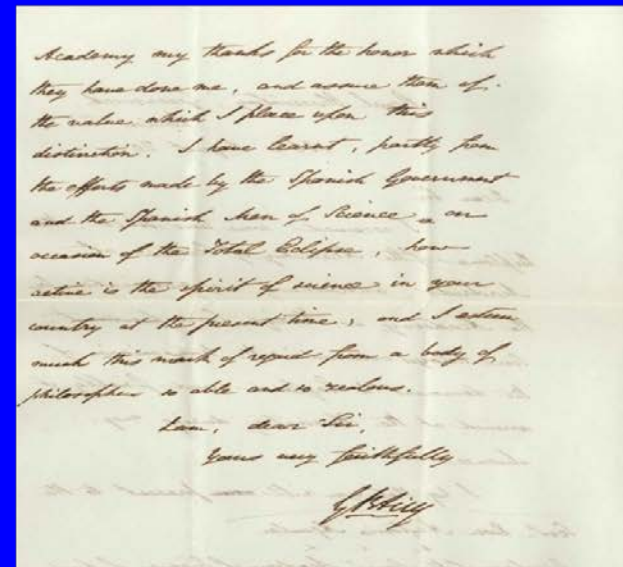 Academy my thanks for the honor which
they have done me, and assure them of
the value which I place upon this
distinction. I have learnt, partly from
the efforts made by the Spanish Government
and the Spanish Men of Science on
occasion of the Total Eclipse, how
active is the spirit of science in your
country at the present time, and I esteem
much this mark of regard from a body of
philosophers so able and so zealous.
I am, dear Sir,
Yours very faithfully
G B Airy